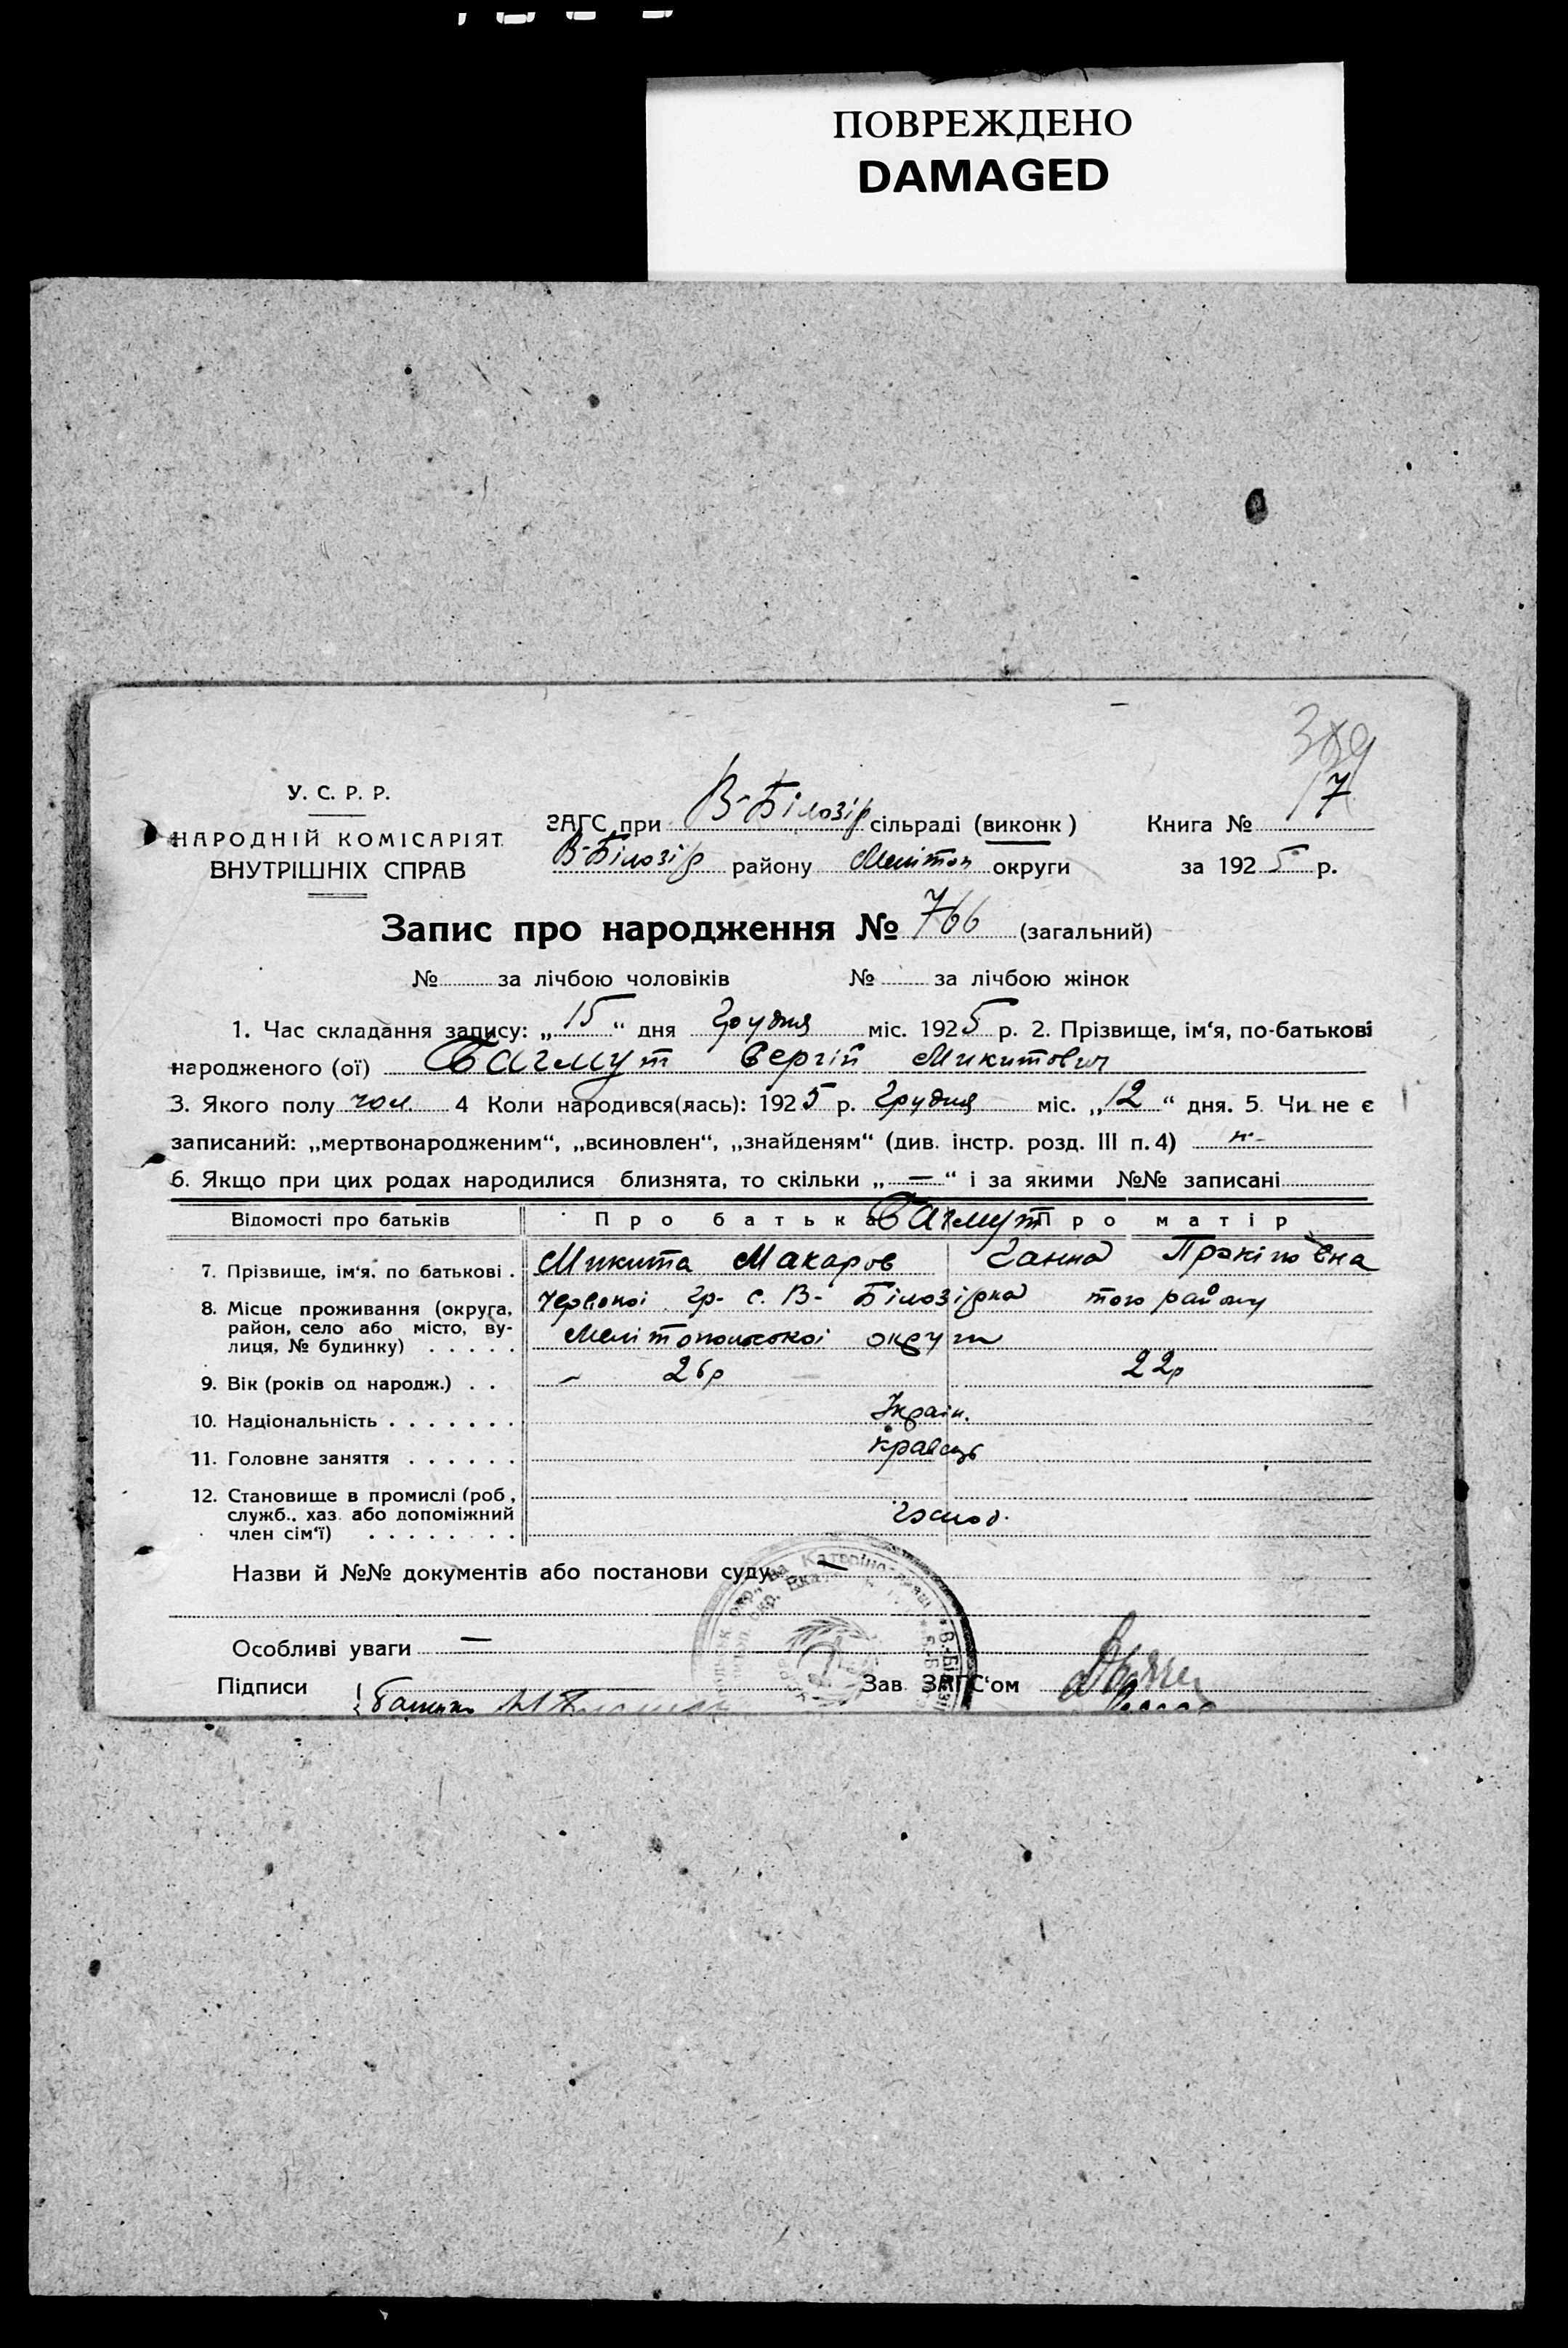 ПОВРЕЖДЕНО
DAMAGED
389
У. С. Р. Р.
НАРОДНІЙ КОМІСАРІЯТ
ВНУТРІШНІХ СПРАВ
ЗАГС при В-Білозір сільраді (виконк) Книга № 17
В-Білозір району Мелітоп округи за 1925 р.
Запис про народження № 766 (загальний)
№ за лічбою чоловіків № за лічбою жінок
1. Час складання запису: „15“ дня Грудня міс. 1925 р. 2. Прізвище, ім‘я, по-батькові
народженого (ої) Багмут Сергій Микитович
3. Якого полу чол. 4 Коли народився(лась): 1925 р. Грудня міс. „12“ дня. 5. Чи не є
записаний: „мертвонародженим“, „всиновлен“, „знайденям“ (див. інстр. розд. III п. 4) н-
6. Якщо при цих родах народилися близнята, то скільки „—“ і за якими №№ записані
Відомості про батьків Про батька Багмут Про матір
7. Прізвище, ім‘я, по батькові . Микита Макаров Ганна
8. Місце проживання (округа, Червоної гр- с. В- Білозірка того району
район, село або місто, ву-
лиця, № будинку) . . . . . Мелітопольської округи
9. Вік (років од народж.) . . – 26р 22р
10. Національність . . . . . . . Україн.
11. Головне заняття . . . . . . кравець
12. Становище в промислі (роб,
служб., хаз. або допоміжний
член сім‘ї) . . . . . . . . Господ.
Назви й №№ документів або постанови суду —
Особливі уваги —
Підписи Зав. ЗАГС‘ом
Батько